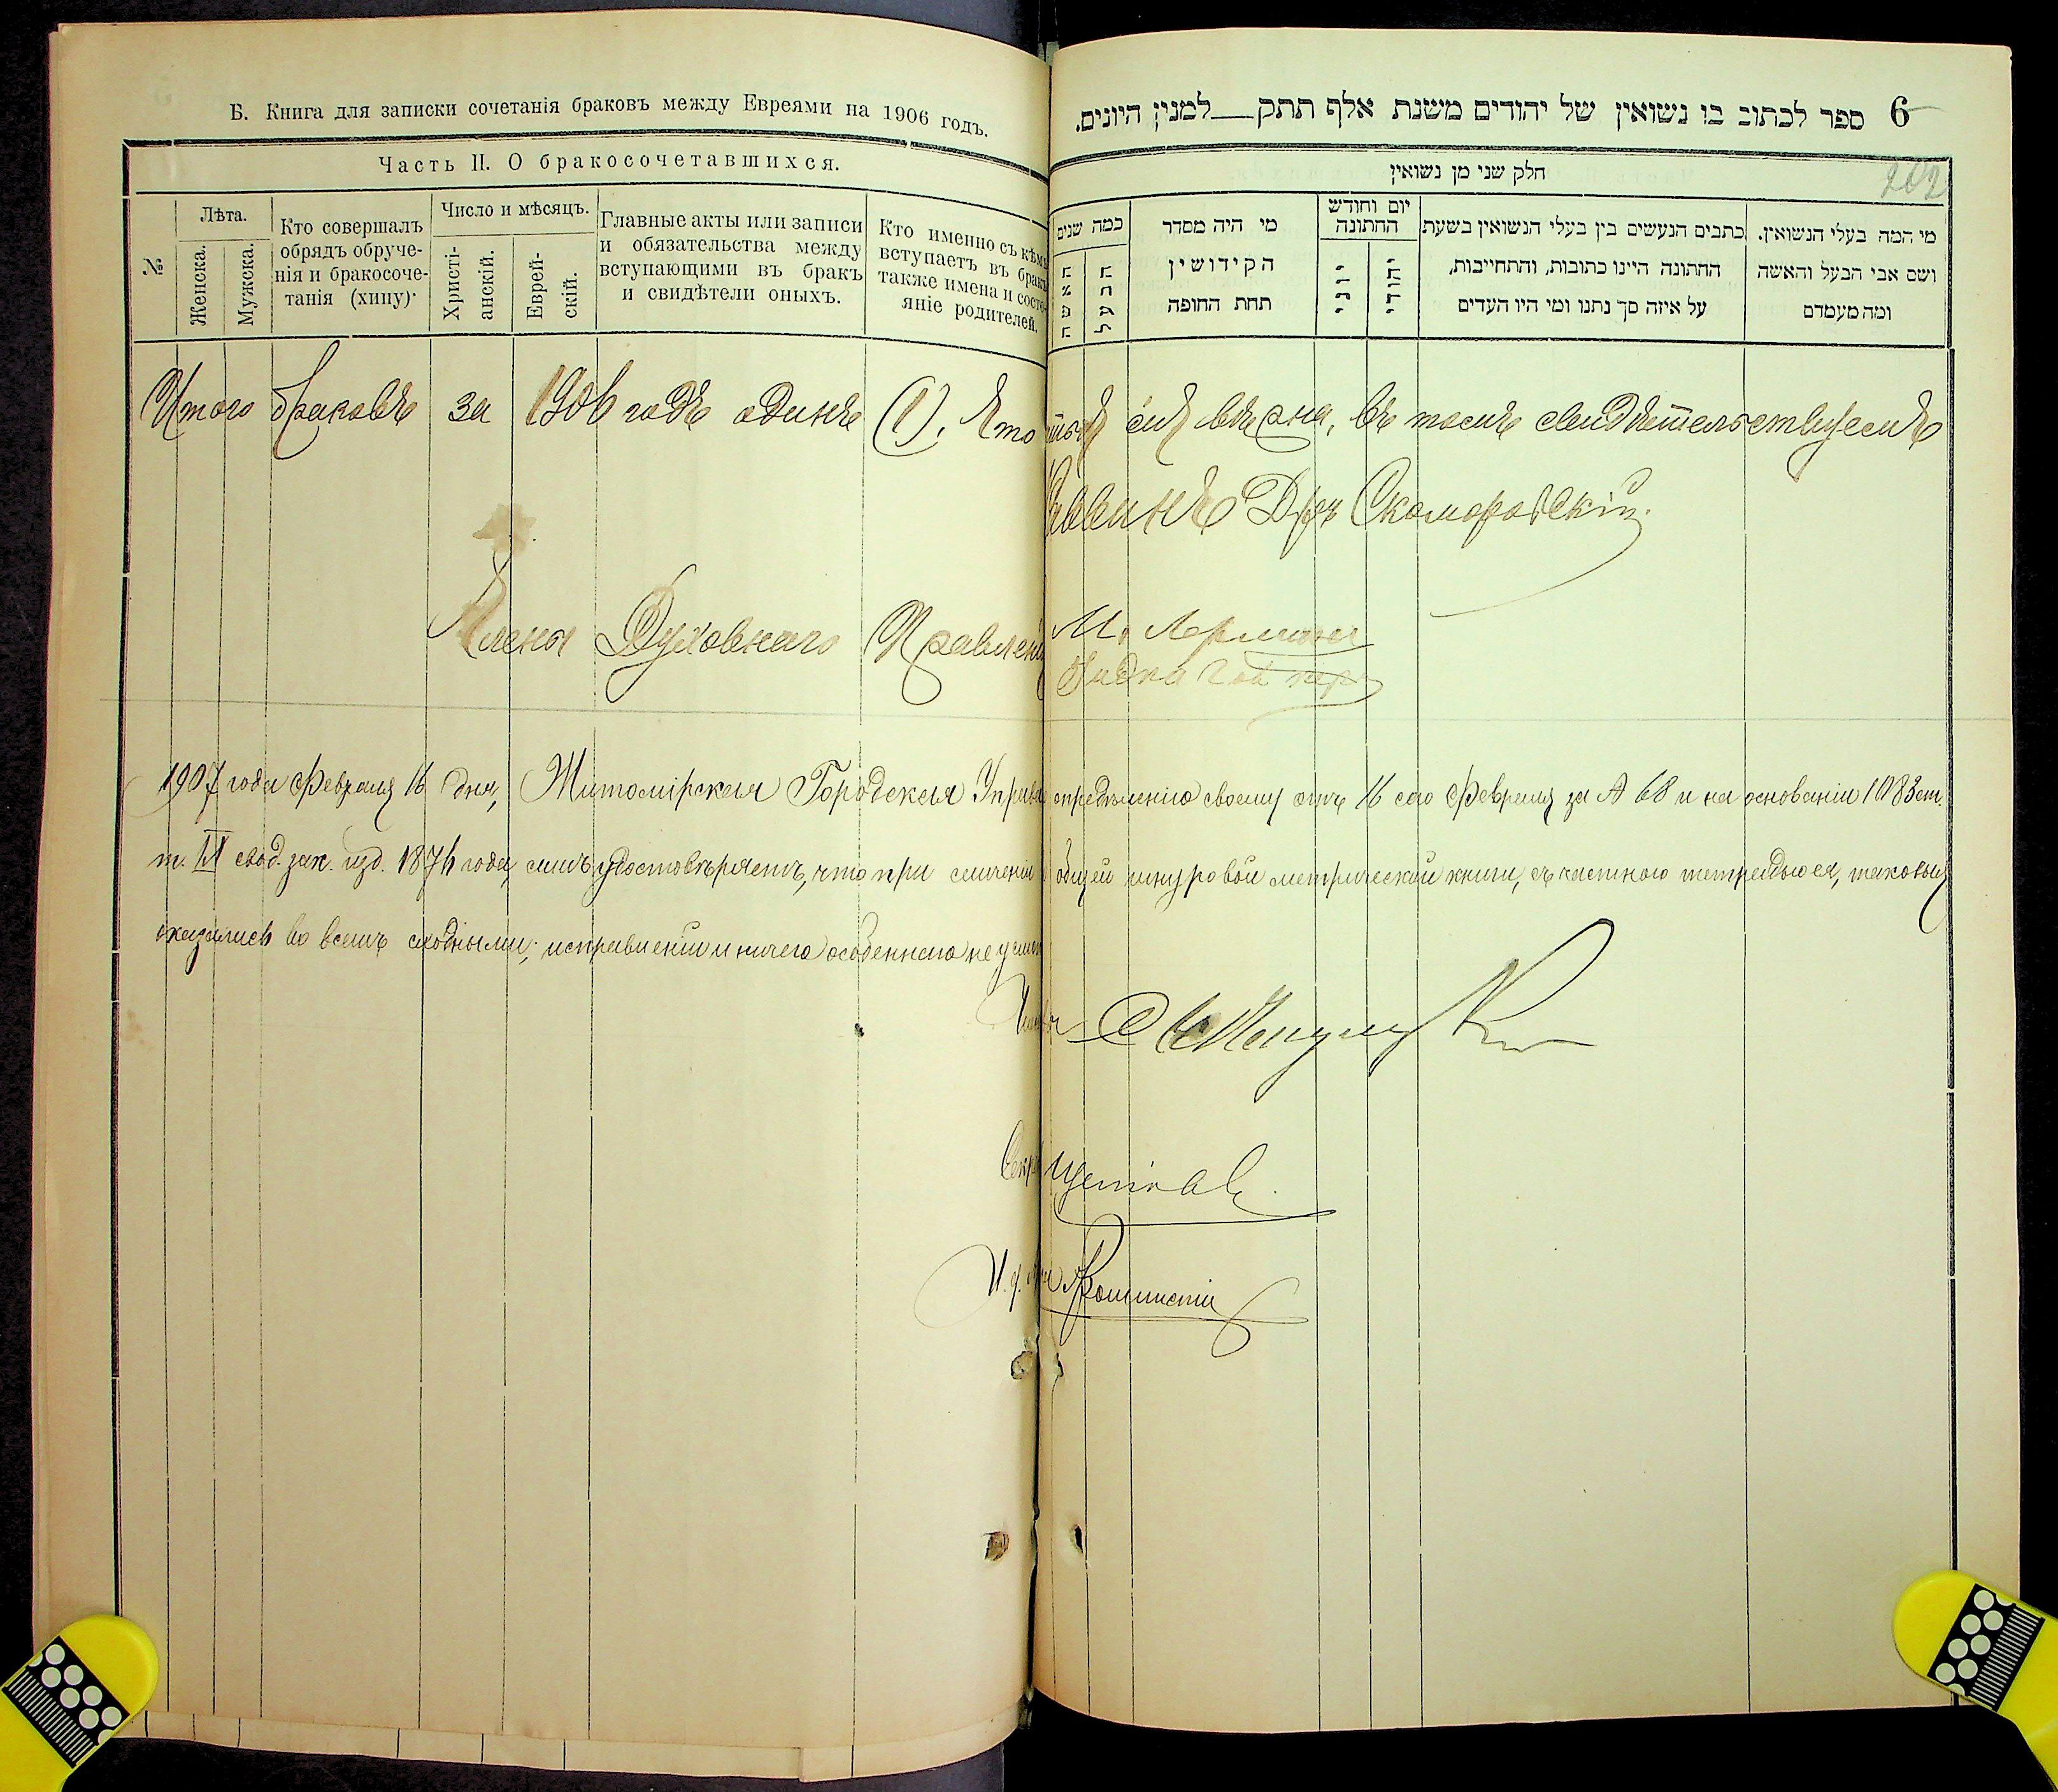 Б. Книга для записки сочетанія браковъ между Евреями на 1906 годъ.
Часть II. О бракосочетавшихся.
№
Лѣта.
Женска.
Мужска.
Кто совершалъ
обрядъ обруче-
нія и бракосоче-
танія (хипу)
Число и мѣсяцъ.
Христі-
анскій.
Еврей-
скій.
Главные акты или записи
и обязательства между
вступающими въ бракъ
и свидѣтели оныхъ.
Кто именно съ кѣмъ
вступаетъ въ бракъ
также имена и состо-
яніе родителей.
6 ספר לכתוב בו נשואין של יהודים משנת אלף תתק למנין היונים.
202
חלק שני מן נשואין
מי המה בעלי הנשואין.
ושם אבי הבעל והאשה
ומה מעמדם
כתבים הנעשים בין בעלי הנשואין בשעת
החתונה היינו כתובות, והתחייבות,
על איזה סך נתנו ומי היו העדים
יום וחודש
החתונה
יהודי
יוני
מי היה מסדר
הקידושין
תחת החופה
כמה שנים
הבעל
האשה
Итого браковъ за 1906 годъ одинъ (1). Что сія вѣрна, въ томъ свидѣтельствуемъ
Раввинъ Д-ръ Скоморовскій.
Члены Духовнаго Правленія
М.
1907 года Февраля 16 дня, Житомірская Городская Управа опредѣленію своему отъ 16 сего Февраля за № 68 и на основаніи 1083 ст.
т. IX свод. зак. изд. 1876 года, симъ удостовѣряетъ, что при сличеніи общей шнуровой метрической книги, съ частною тетрадью ея, таковыя
оказались во всемъ сходными; исправленій и ничего особеннаго не
Членъ
Секр
И. д.